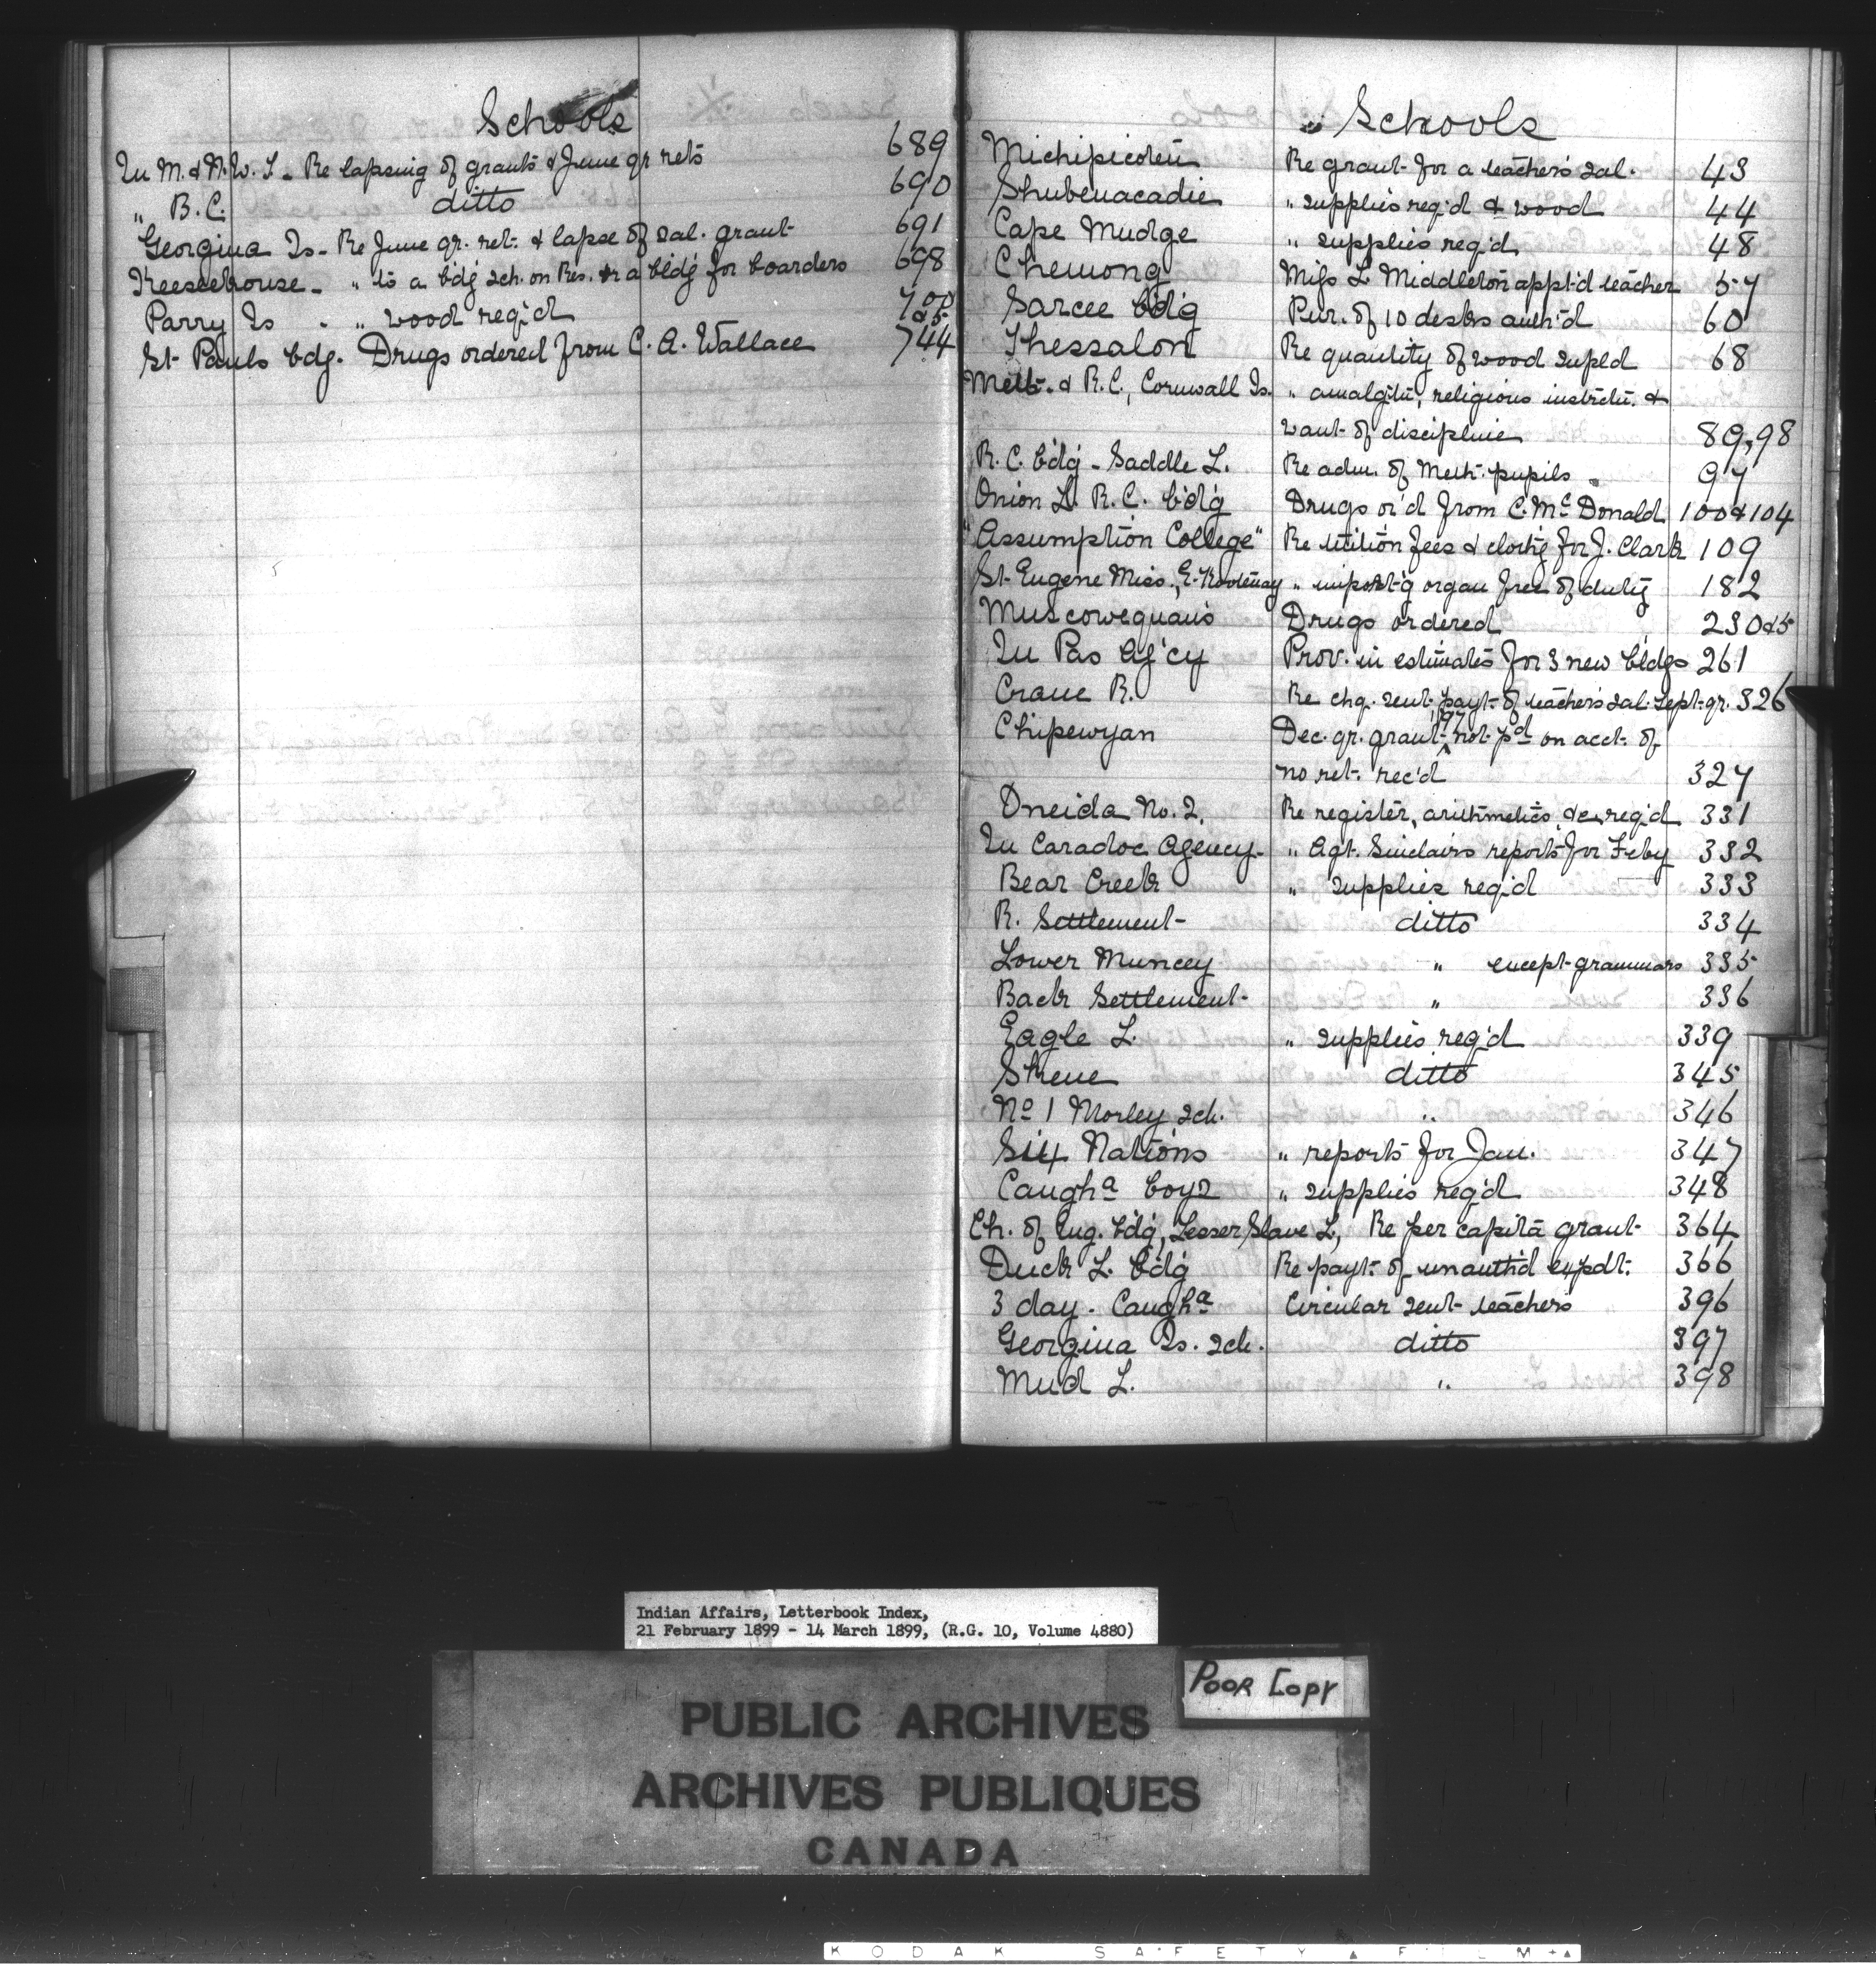 Schools
In M. & N.W.T. - Re lapsing of grants & June qr rets 689
" B.C. ditto 690
Georgina Is - Re June qr. ret. & lapse of sal. grant 691
Keeseekouse - " to a bdg sch. on Res. or a bldg for boarders 698
Parry Is - " wood req'd 700
St. Pauls bdg. Drugs ordered from C. A. Wallace 744
Schools
Michipicoten Re grant for a teacher's sal. 43
Shubenacadie " supplies req'd & wood 44
Cape Mudge " supplies req'd 48
Chemong Miss L. Middleton appt'd teacher 57
Sarcee bdg Pur. of 10 desks auth'd 60
Thessalon Re quantity of wood supld 68
Meth. & R.C., Cornwall Is. " amalg'tn, religious instrctn. &
want of discipline 89,98
R.C. bdg - Saddle L. Re adm. of Meth. pupils 97
Onion L. R.C. bdg Drugs or'd from C. McDonald 100&104
"Assumption College" Re tuition fees & clothg for J. Clark 109
St. Eugene Miss., E. Kootenay " import'g organ free of duty 182
Muscowequan's Drugs ordered 230&5
In Pas Ag'cy Prov. in estimates for 3 new bldgs 261
Crane R. Re chq. sent payt. of teacher's sal. Sept. qr. 326
Chipewyan Dec. qr. grant '97 not pd on acct. of
no ret. rec'd 327
Oneida No. 2. Re register, arithmetics, &c, req'd 331
In Caradoc Agency - " Agt. Sinclair's reports for Feby 332
Bear Creek " supplies req'd 333
R. Settlement ditto 334
Lower Muncey " except grammars 335
Back Settlement " 336
Eagle L. " supplies req'd 339
Skene ditto 345
No 1 Morley sch. " 346
Six Nations " reports for Jan. 347
Caugha boys " supplies req'd 348
Ch. of Eng. bdg, Lesser Slave L, Re per capita grant 364
Duck L. bdg Re payt. of unauth'd expdt. 366
3 day - Caugha Circular sent teachers 396
Georgina Is. sch. ditto 397
Mud L. " 398
Indian Affairs, Letterbook Index,
21 February 1899 - 14 March 1899, (R.G. 10, Volume 4880)
POOR COPY
PUBLIC ARCHIVES
ARCHIVES PUBLIQUES
CANADA
KODAK SAFETY FILM